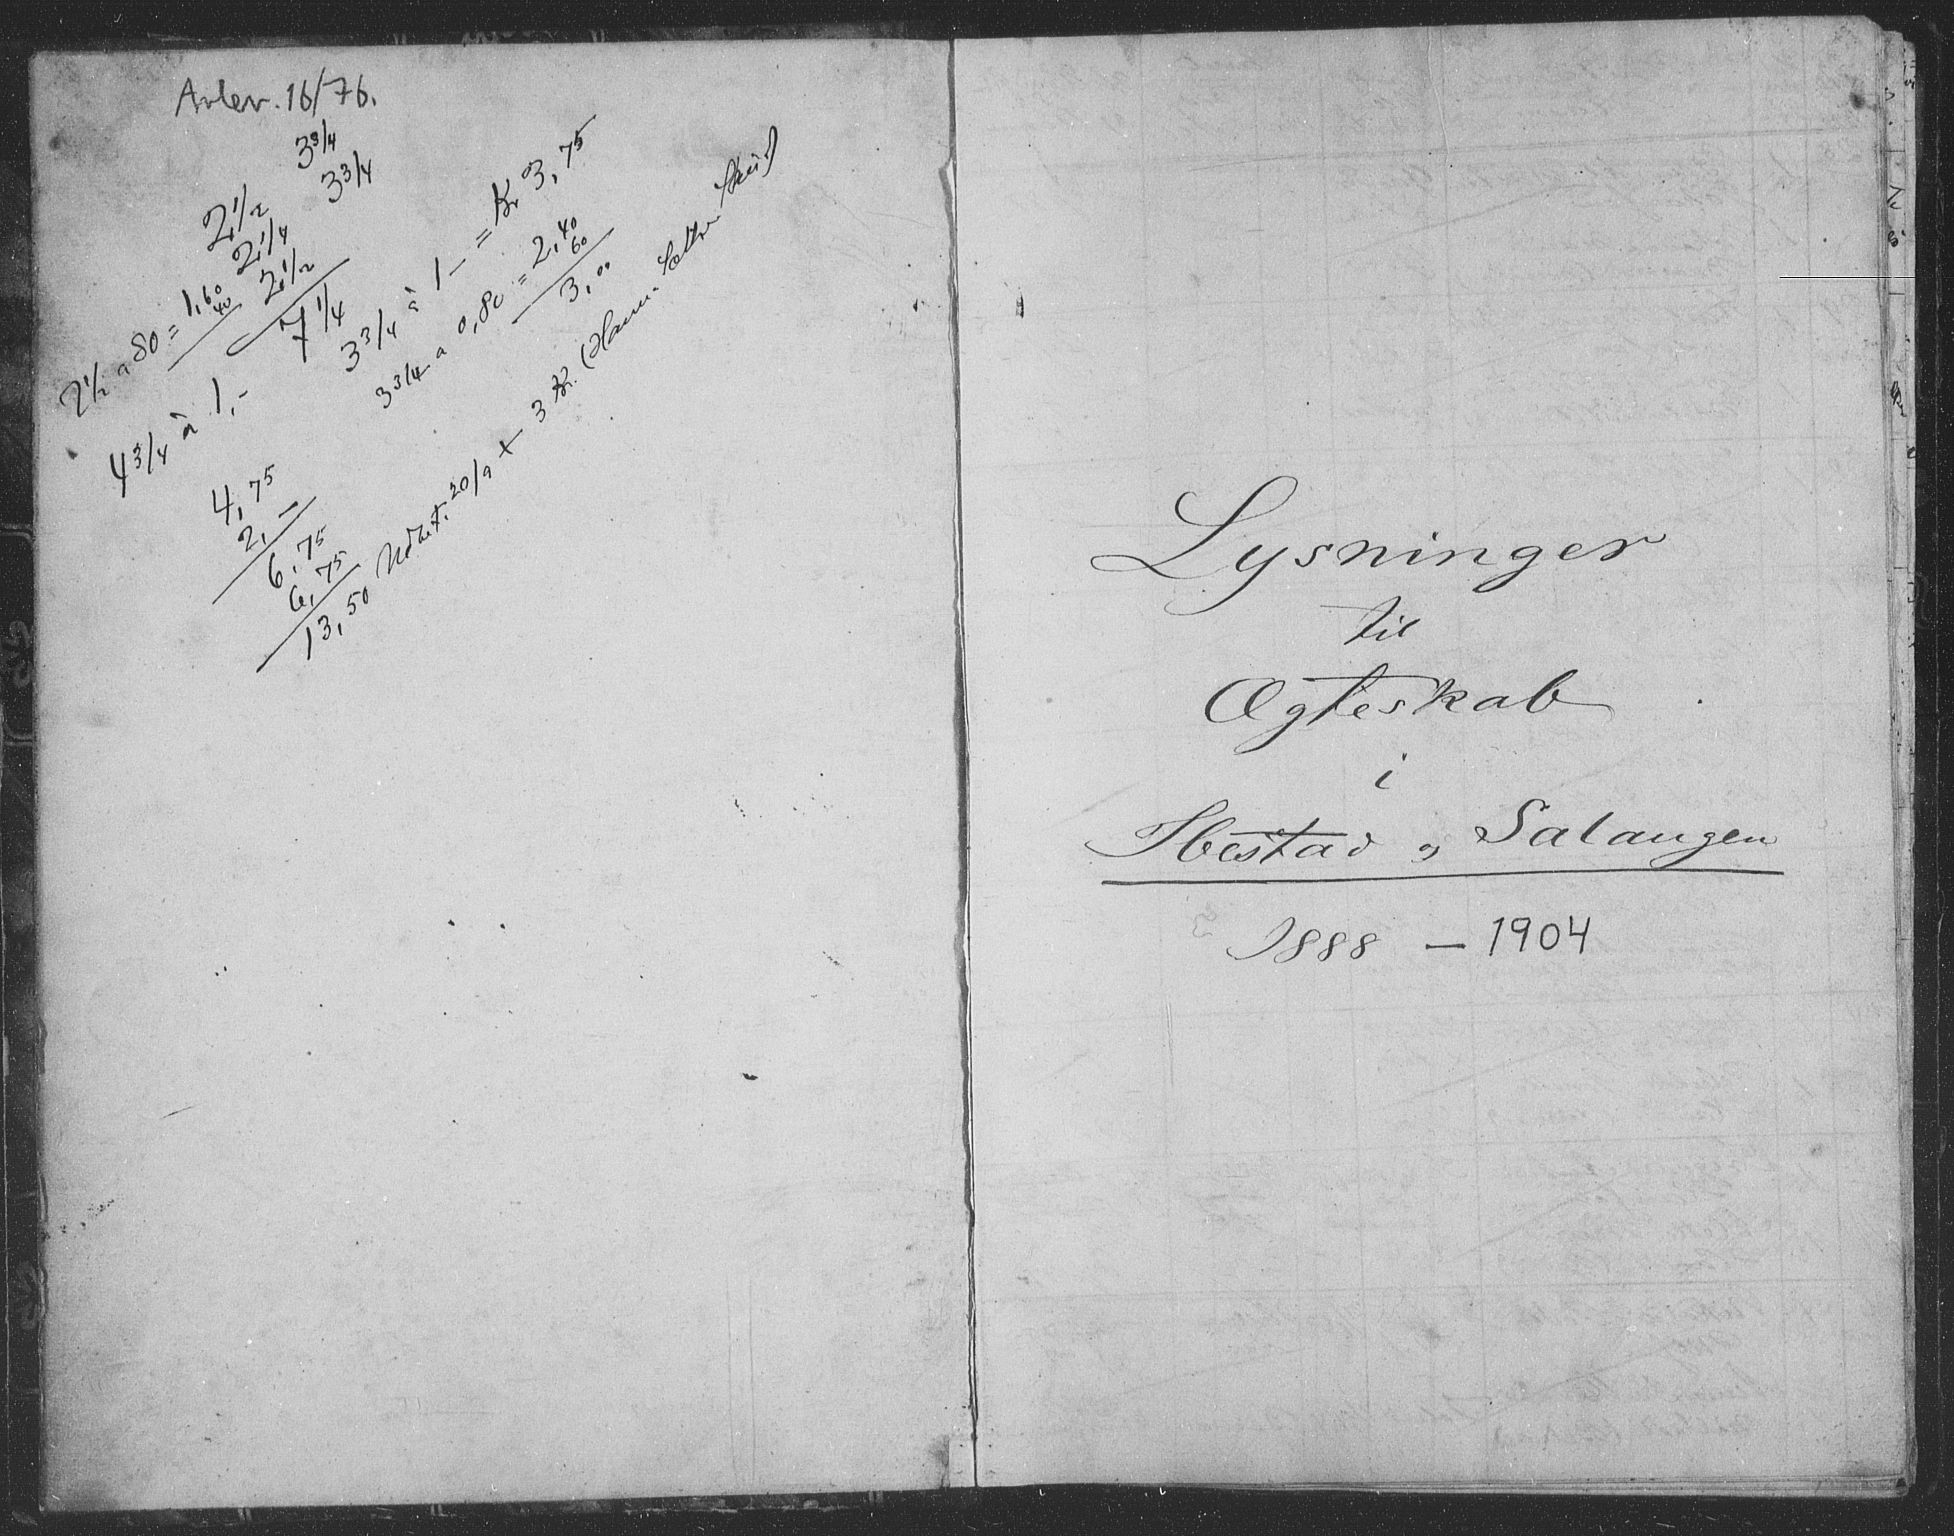 Avlev. 16/76.
3 3/4
3 3/4
2 1/2
2 1/4
2 1/2
7 1/4
2 1/2 a 80 = 1,60
40
4 3/4 à 1,-
3 3/4 à 1 - = Kr 3,75
3 3/4 a 0,80 = 2,40
60
3,00
4,75
2, -
6,75
6,75
13,50 20/9 + 3 Kr.
Lysninger
til
Ægteskab
i
Ibestad og Salangen
1888 - 1904